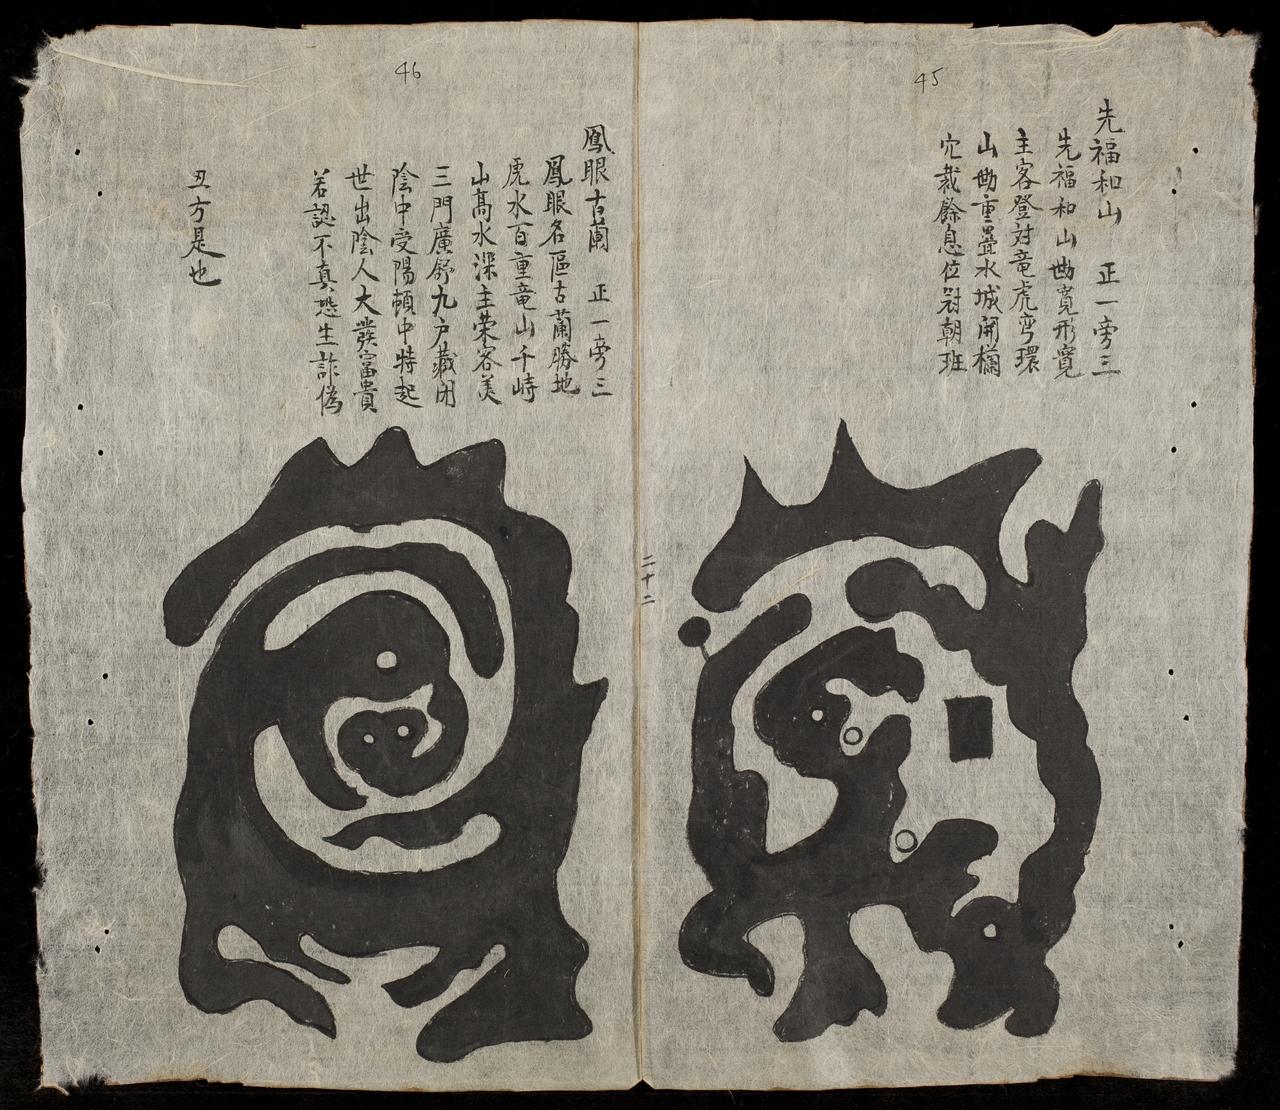 45
先福和山 正一旁三
先福和山勢寬形寬
主客登対竜虎弯環
山勢重疊水城開欄
穴裁餘息位冠朝班
二十二
46
鳳眼古蘭 正一旁三
鳳眼名區古蘭勝地
虎水百重竜山千峙
山髙水深主荣客美
三門廣舒九户藏闭
陰中受陽頓中特起
世出陰人大發富貴
若認不真恐生詐偽
丑方是也